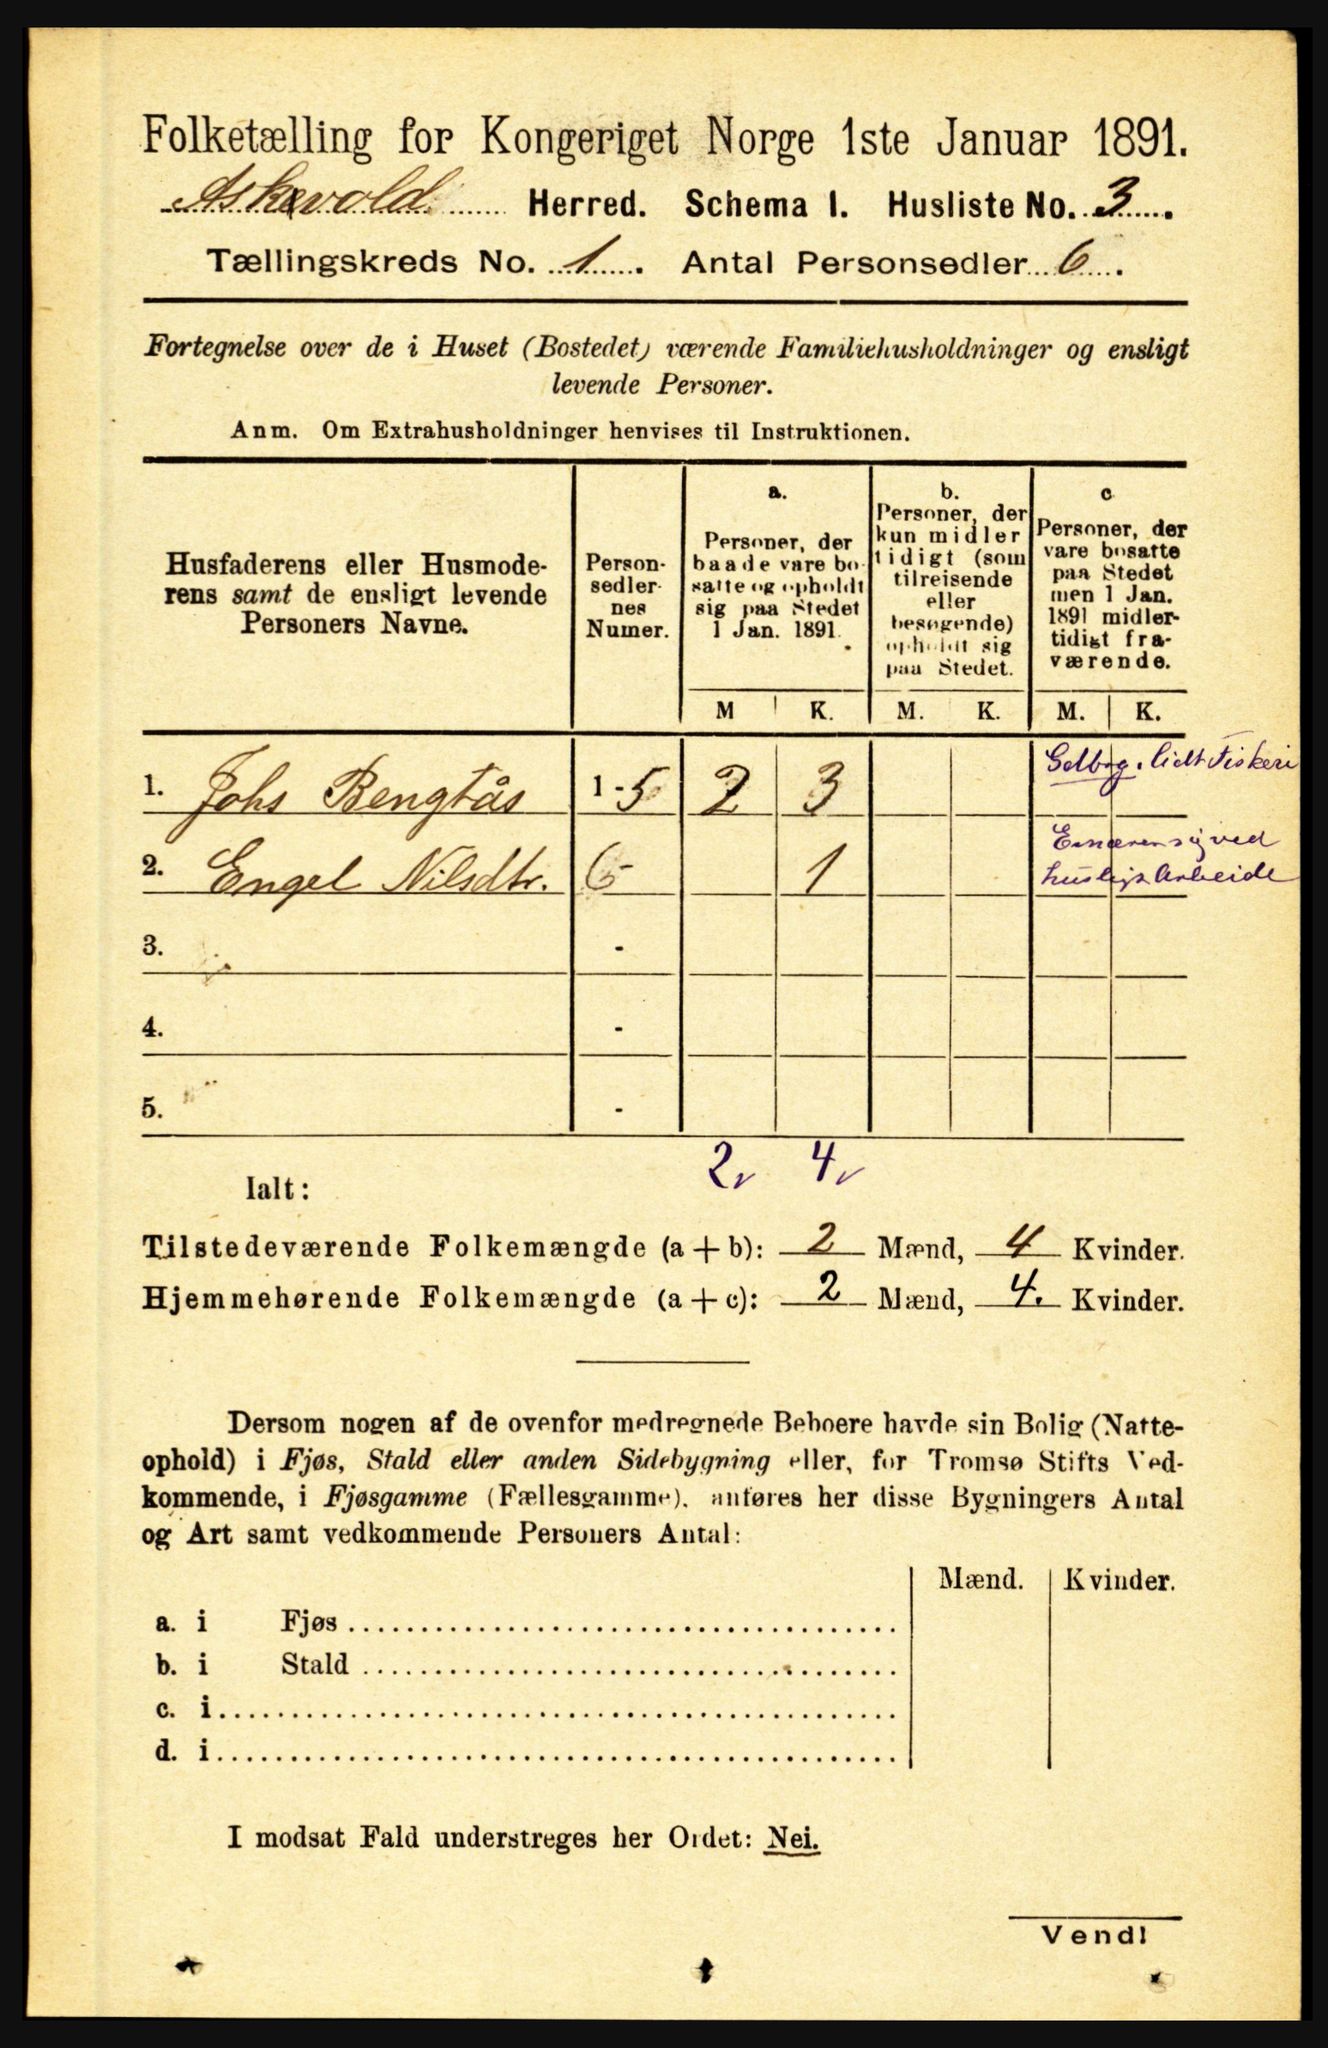 Folketælling for Kongeriget Norge 1ste Januar 1891.
Askevold Herred. Schema I. Husliste No. 3.
Tællingskreds No. 1. Antal Personsedler 6.
Fortegnelse over de i Huset (Bostedet) værende Familiehusholdninger og ensligt
levende Personer.
Anm. Om Extrahusholdninger henvises til Instruktionen.
Husfaderens eller Husmode-
rens samt de ensligt levende
Personers Navne.
Person-
sedler-
nes
Numer.
a.
Personer, der
baade vare bo-
satte og opholdt
sig paa Stedet
1 Jan. 1891.
b.
Personer, der
kun midler
tidigt (som
tilreisende
eller
besøgende)
opholdt sig
paa Stedet.
c
Personer, der
vare bosatte
paa Stedet
men 1 Jan.
1891 midler-
tidigt fra-
værende.
M K. M. K. M. K.
1. Johs Bengtås 1-5 2 3 Gdbrg. lidt Fiskeri
2. Engel Nilsdtr. 6 1 Ernærer sig ved
husligt Arbeide
3. -
4. -
5. -
2 4
Ialt:
Tilstedeværende Folkemængde (a+b): 2 Mænd, 4 Kvinder.
Hjemmehørende Folkemængde (a+c): 2 Mænd, 4. Kvinder.
Dersom nogen af de ovenfor medregnede Beboere havde sin Bolig (Natte-
ophold) i Fjøs, Stald eller anden Sidebygning eller, for Tromsø Stifts Ved-
kommende, i Fjøsgamme (Fællesgamme), anføres her disse Bygningers Antal
og Art samt vedkommende Personers Antal:
Mænd. Kvinder.
a. i Fjøs
b. i Stald
c. i
d. i
I modsat Fald understreges her Ordet: Nei.
Vend!